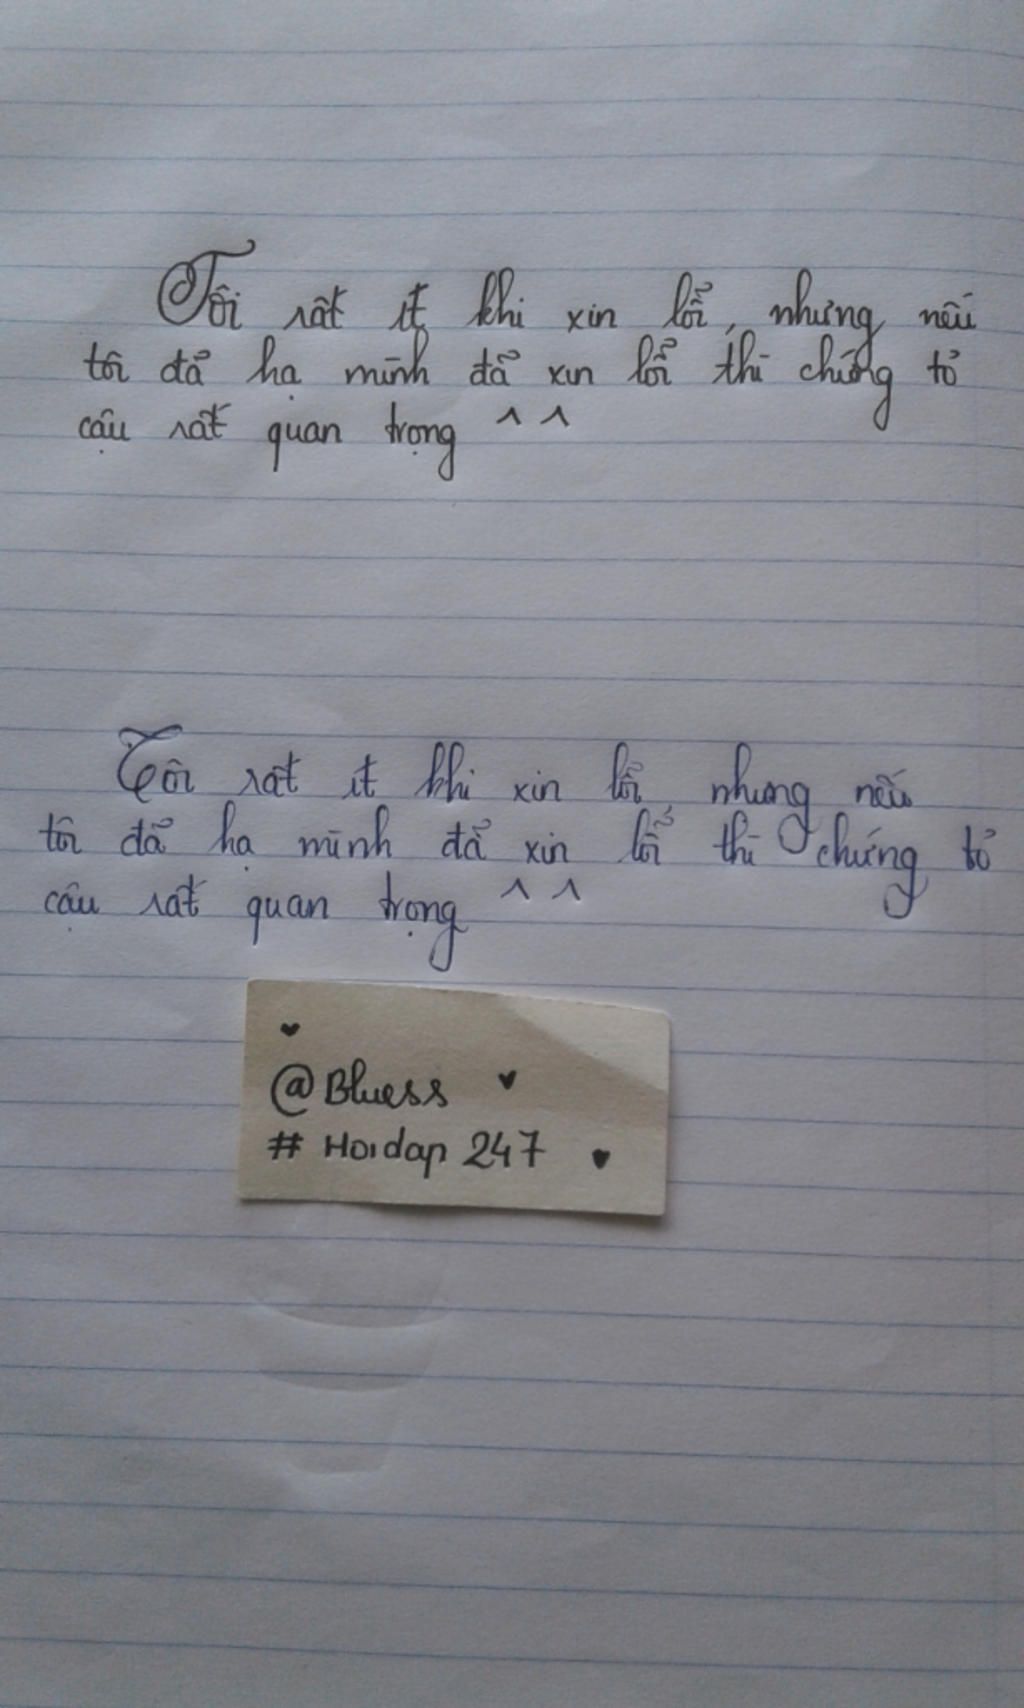 Tôi rất ít khi xin lỗi, nhưng nếu
tôi đã hạ mình đã xin lỗi thì chứng tỏ
cậu rất quan trọng ^ ^
Tôi rất ít khi xin lỗi, nhưng nếu
tôi đã hạ mình đã xin lỗi thì chứng tỏ
cậu rất quan trọng ^ ^
@Bluess
# Hoidap 247